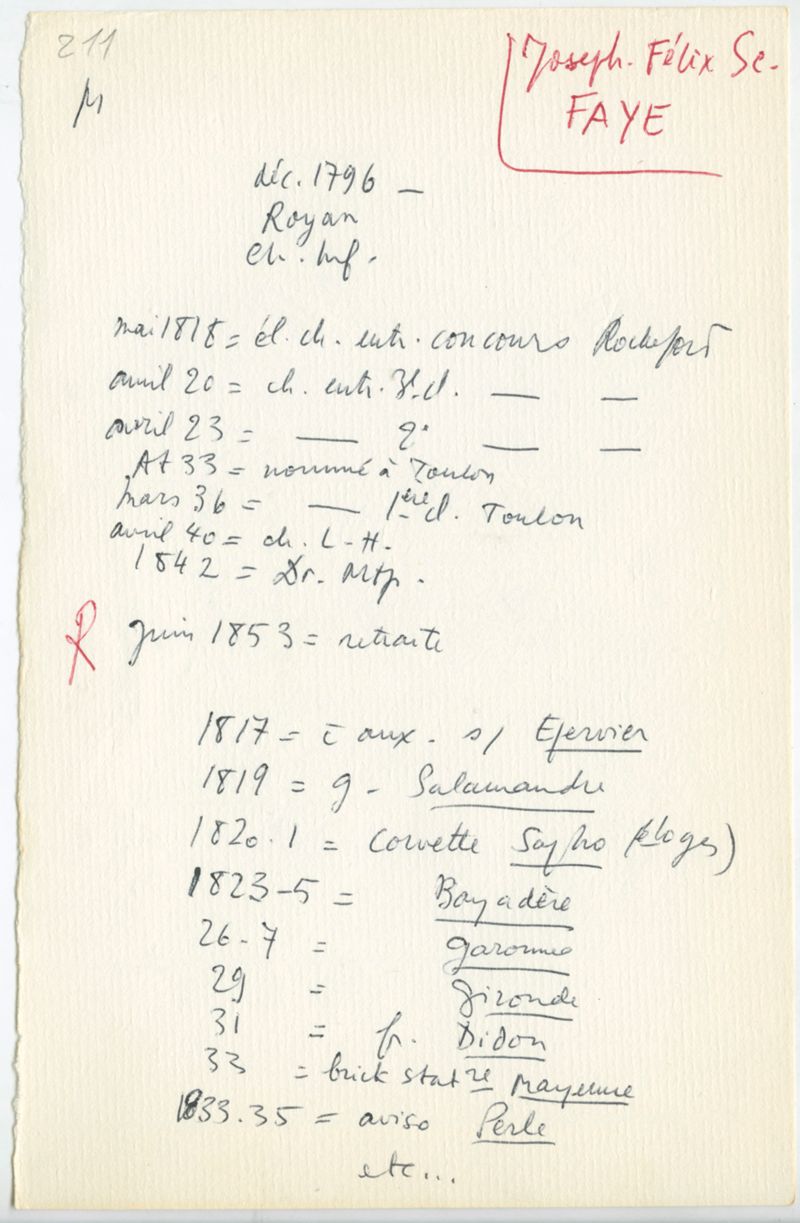 211
M
Joseph. Félix Sc.
FAYE
déc. 1796 —
Royan
ch. Inf.
mai 1818 = él. ch. entr. concours Rochefort
avril 20 = ch. entr. 3e cl. — —
avril 23 = — 2e — —
At 33 = nommé à Toulon
mars 36 = — 1ère cl. Toulon
avril 40 = ch. L-H.
1842 = Dr. Mtp.
R juin 1853 = retraite
1817 = aux. s/ Epervier
1819 = g- Salamandre
1820.1 = corvette Sapho (éloges)
1823-5 = Bayadère
26-7 = Garonne
29 = Gironde
31 = fr. Didon
33 = brick statre Mayenne
1833.35 = aviso Perle
etc...